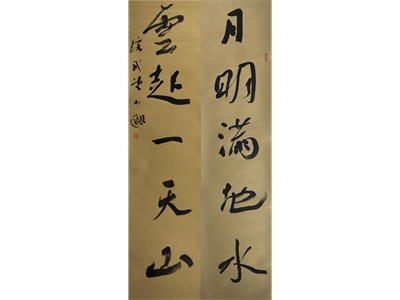 月明满地水
雲起一天山